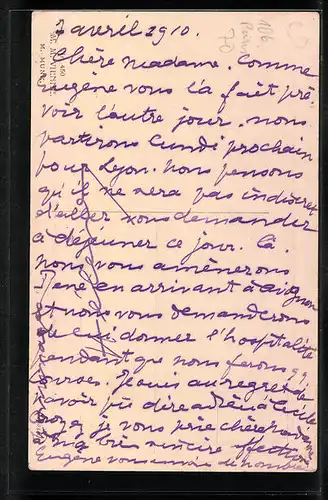 7 avril 1910.
Chère madame. Comme
Eugène vous l'a fait pré
voir l'autre jour. nous
partirons Lundi prochain
pour Lyon. nous pensons
qu'il ne sera pas indiscret
d'aller vous demander
à déjeuner ce jour. là.
nous vous amènerons
René en arrivant à
et nous vous demanderons
de lui donner l'hospitalité
pendant que nous ferons
Je suis au regret de
n'avoir pu dire adieu à
je vous prie chère madame
très sincère affection
Eugène vous envoie de
460
M. MUN
106
70